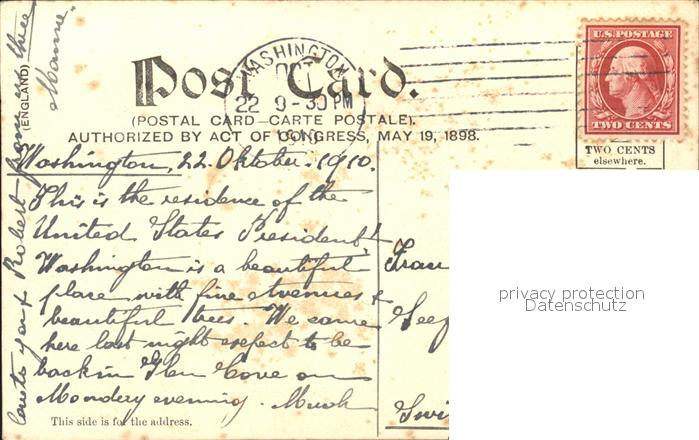 Post Card.
(POSTAL CARD—CARTE POSTALE).
AUTHORIZED BY ACT OF CONGRESS, MAY 19, 1898.
(ENGLAND)
WASHINGTON
OCT
22 9-30 PM
U.S. POSTAGE
TWO CENTS
TWO CENTS
elsewhere.
Washington, 22 Oktober. 1910.
This is the residence of the
United States President!
Washington is a beautiful
place with fine avenues &
beautiful trees. We came
here last night expect to be
back in Glen Cove on
Monday evening. Much
love to you & Robert from us three
Mamie.
Frau
Seef
Swi
This side is for the address.
privacy protection
Datenschutz